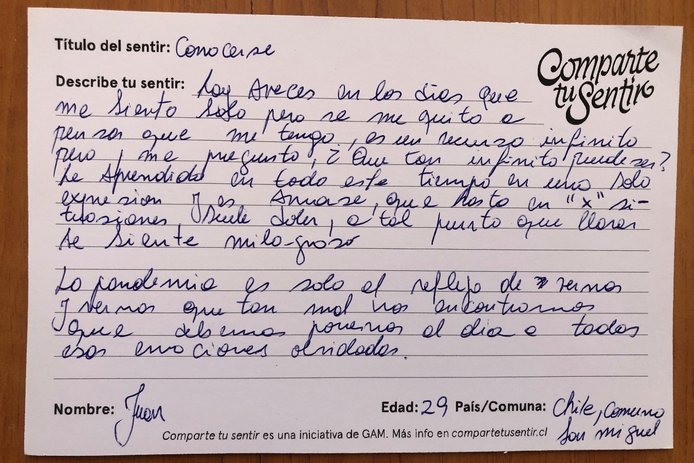 Título del sentir: Conocerse
Comparte
tu Sentir
Describe tu sentir: hay aveces en los dias que
me siento solo pero se me quito a
pensar que me tengo, es un recurso infinito
pero, me pregunto, ¿ Que tan infinito puede ser?
he aprendido en todo este tiempo en una solo
expresion y es Amarse, que hasta en "x" si-
tuaciones, suele doler, a tal punto que llorar
se siente milagroso
La pandemia es solo el reflejo de vernos
y vernos que tan mal nos encontramos
que debemos ponernos al dia a todas
esas emociones olvidadas.
Nombre: Juan
Edad: 29 País/Comuna: Chile, comuna
San miguel
Comparte tu sentir es una iniciativa de GAM. Más info en compartetusentir.cl